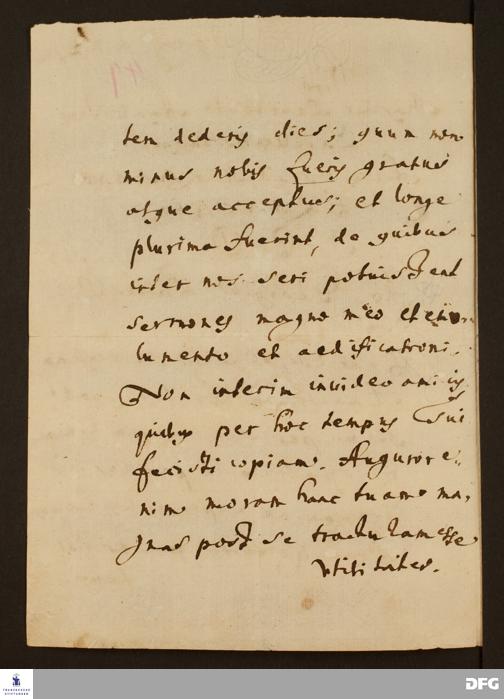 tem dederis dies; quum non
minus nobis fueris gratus
atque acceptus; et longe
plurima fuerint, de quibus
inter nos seri potuissent
sermones magno meo et emo-
lumento et aedificationi.
Non interim invideo amicis
quibus per hoc tempus Tui
fecisti copiam. Auguror e-
nim moram hanc tuam ma-
gnas post se tracturam esse
utilitates.
FRANCKESCHE
STIFTUNGEN
DFG